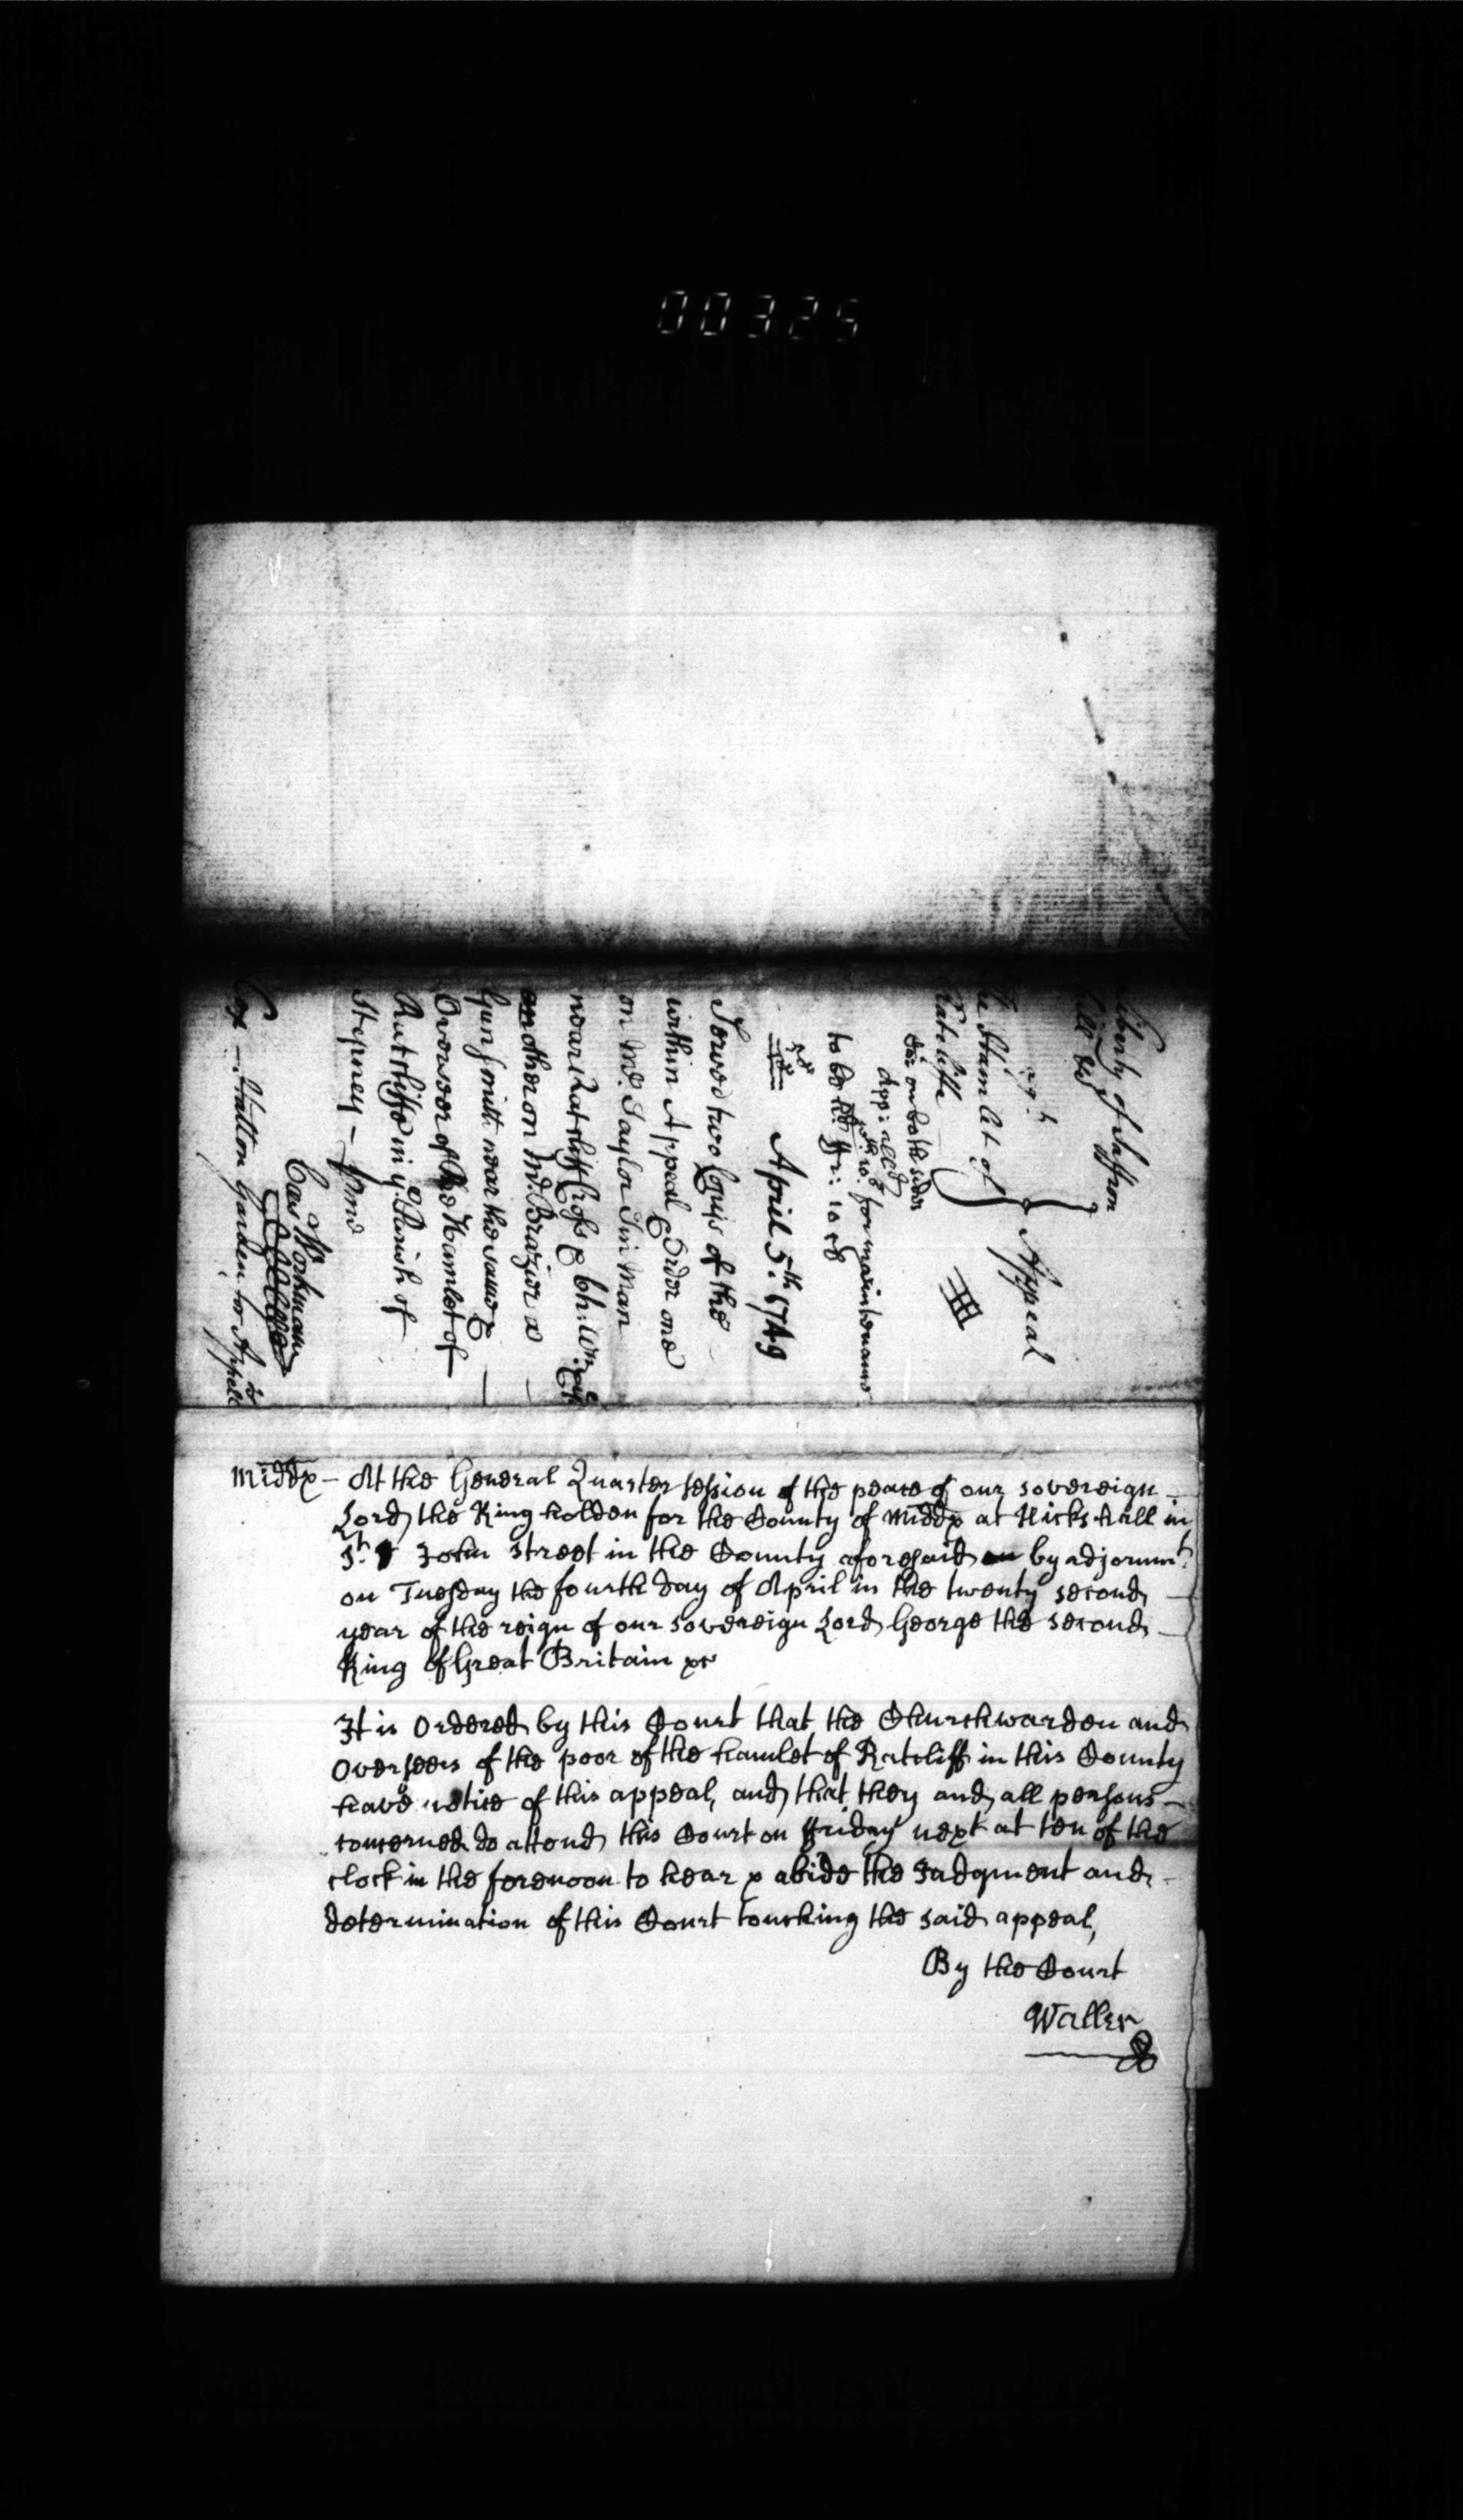 00325
Liberty of Saffron
Hill &c
agt.
The Hamlet of
Ratcliffe
Appeal
on both sides
app: alld
for maintenance
to be
April 5th. 1749
Served two Copys of the
within Appeal & Order one
on Mr. Taylor Tin Man
near Ratcliff Cross & Ch: Wn.
another on Mr. Brazier a
Gun Smith near the same &
Overseer of the Hamlet of
Ratcliffe in ye. Parish of
Stepney -
Cas Workman
Cox - Hatton Garden for Appellts
Middx - At the General Quarter session of the peace of our sovereign -
Lord the King holden for the County of Middx at Hicks hall in
St. John street in the County aforesaid by adjornmt.
on Tuesday the fourth day of April in the twenty second -
year of the reign of our sovereign Lord George the second -
King of Great Britain &c
It is Ordered by this Court that the Churchwarden and
Overseers of the poor of the hamlet of Ratcliff in this County
have notice of this appeal, and that they and all persons -
concerned do attend this Court on friday next at ten of the
clock in the forenoon to hear & abide the Judgment and -
determination of this Court touching the said appeal,
By the Court
Waller